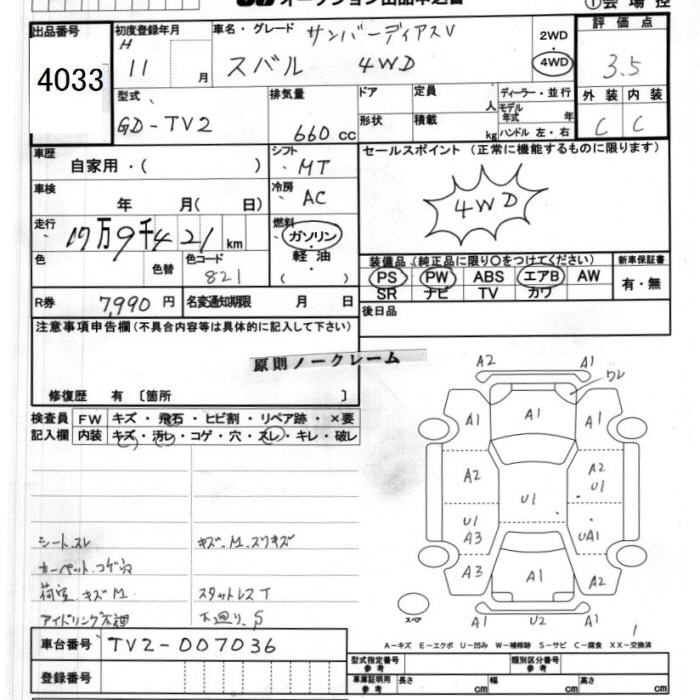 オークション出品申込書
①会場控
出品番号 初度登録年月 車名・グレード サンバーディアスV 2WD・4WD 評価点
4033 H 11 月 スバル 4WD 3.5
型式 排気量 ドア 定員 人 ディーラー・並行 外装 内装
GD-TV2 660 cc 形状 積載 kg モデル年式 年 ハンドル 左・右 C C
車歴 自家用・( ) シフト MT セールスポイント (正常に機能するものに限ります)
車検 年 月( 日) 冷房 AC 4WD
走行 17万9千421km 燃料 ガソリン・軽油・( )
色 色替 色コード 821
装備品 (純正品に限り〇をつけてください) 新車保証書
PS PW ABS エアB AW 有・無
SR ナビ TV カワ
R券 7,990 円 名変通知期限 月 日 後日品
注意事項申告欄 (不具合内容等は具体的に記入して下さい)
原則ノークレーム
修復歴 有 〔箇所 〕
検査員 FW キズ・飛石・ヒビ割・リペア跡・×要
記入欄 内装 キズ・汚レ・コゲ・穴・スレ・キレ・破レ
シートスレ キズ・M・スリキズ
カーペットコゲ穴
荷室キズM スタットレスT
アイドリング不調 下廻りS
A2 A1
ワレ
A1 A1 A1
A2 A2 U1
U1
U1 A3 UA1
A3 A1 A2
スペア A1 U2 A1
車台番号 TV2-007036
A－キズ E－エクボ U－凹み W－補修跡 S－サビ C－腐食 XX－交換済
登録番号
型式指定番号 参考 類別区分番号 参考
車庫証明用 参考 長さ cm 幅 cm 高さ cm